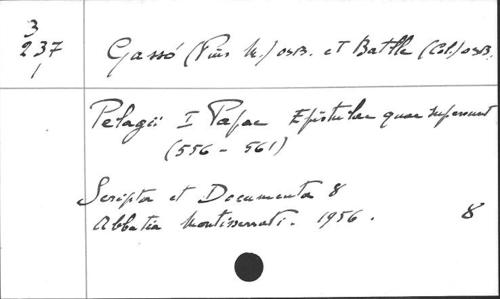 3
237
1
Gassó (Pius M.) OSB. et Batlle (Col.) OSB.
Pelagii I Papae Epistulae quae supersunt
(556 - 561)
Scripta et Documenta 8
Abbatia Montisserrati. 1956. 8